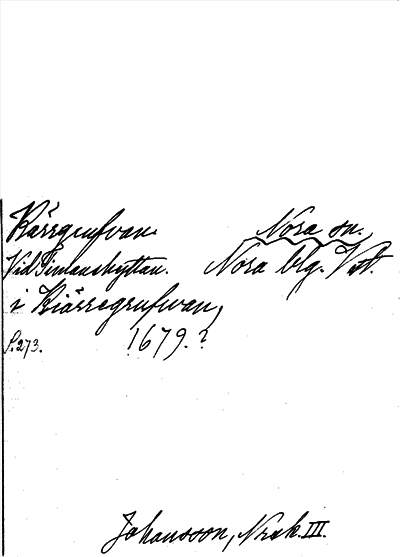 Kärrgrufvan. Nora sn.
Vid Timanshyttan. Nora blg. Vstl.
i Kiärregrufwan,
S. 273. 1679.?
Johansson, Norask. III.